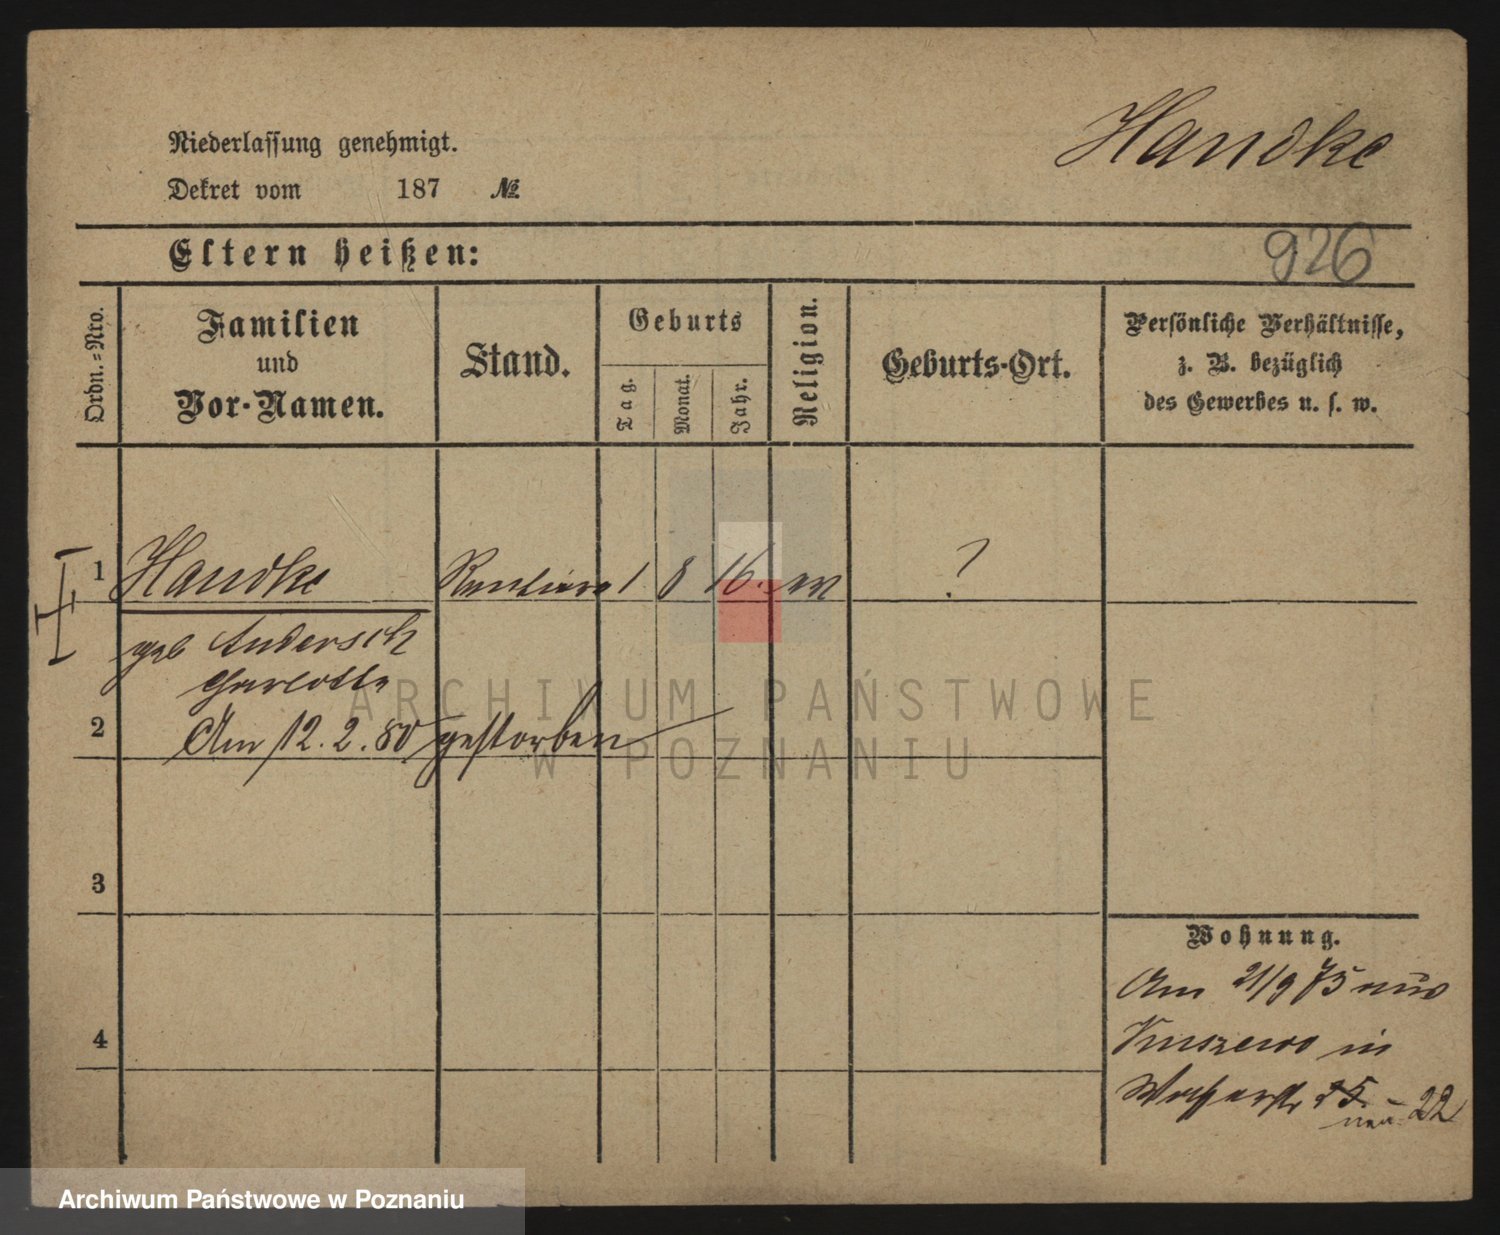 Handke
Niederlassung genehmigt.
Dekret vom 187 №
Eltern heißen:
926
Ordn.=Nro.
Familien
und
Vor-Namen.
Stand.
Geburts
Tag.
Monat.
Jahr.
Religion.
Geburts-Ort.
Persönliche Verhältnisse,
z. B. bezüglich
des Gewerbes u. s. w.
1 Handke Rentiere 1 8 16. ev ?
geb Andersch
Charlotte
2 Am 12. 2. 80 gestorben
3
4
Wohnung.
Am 21/9 75 aus
in
25. - 22
neu
ARCHIWUM PAŃSTWOWE
W POZNANIU
Archiwum Państwowe w Poznaniu